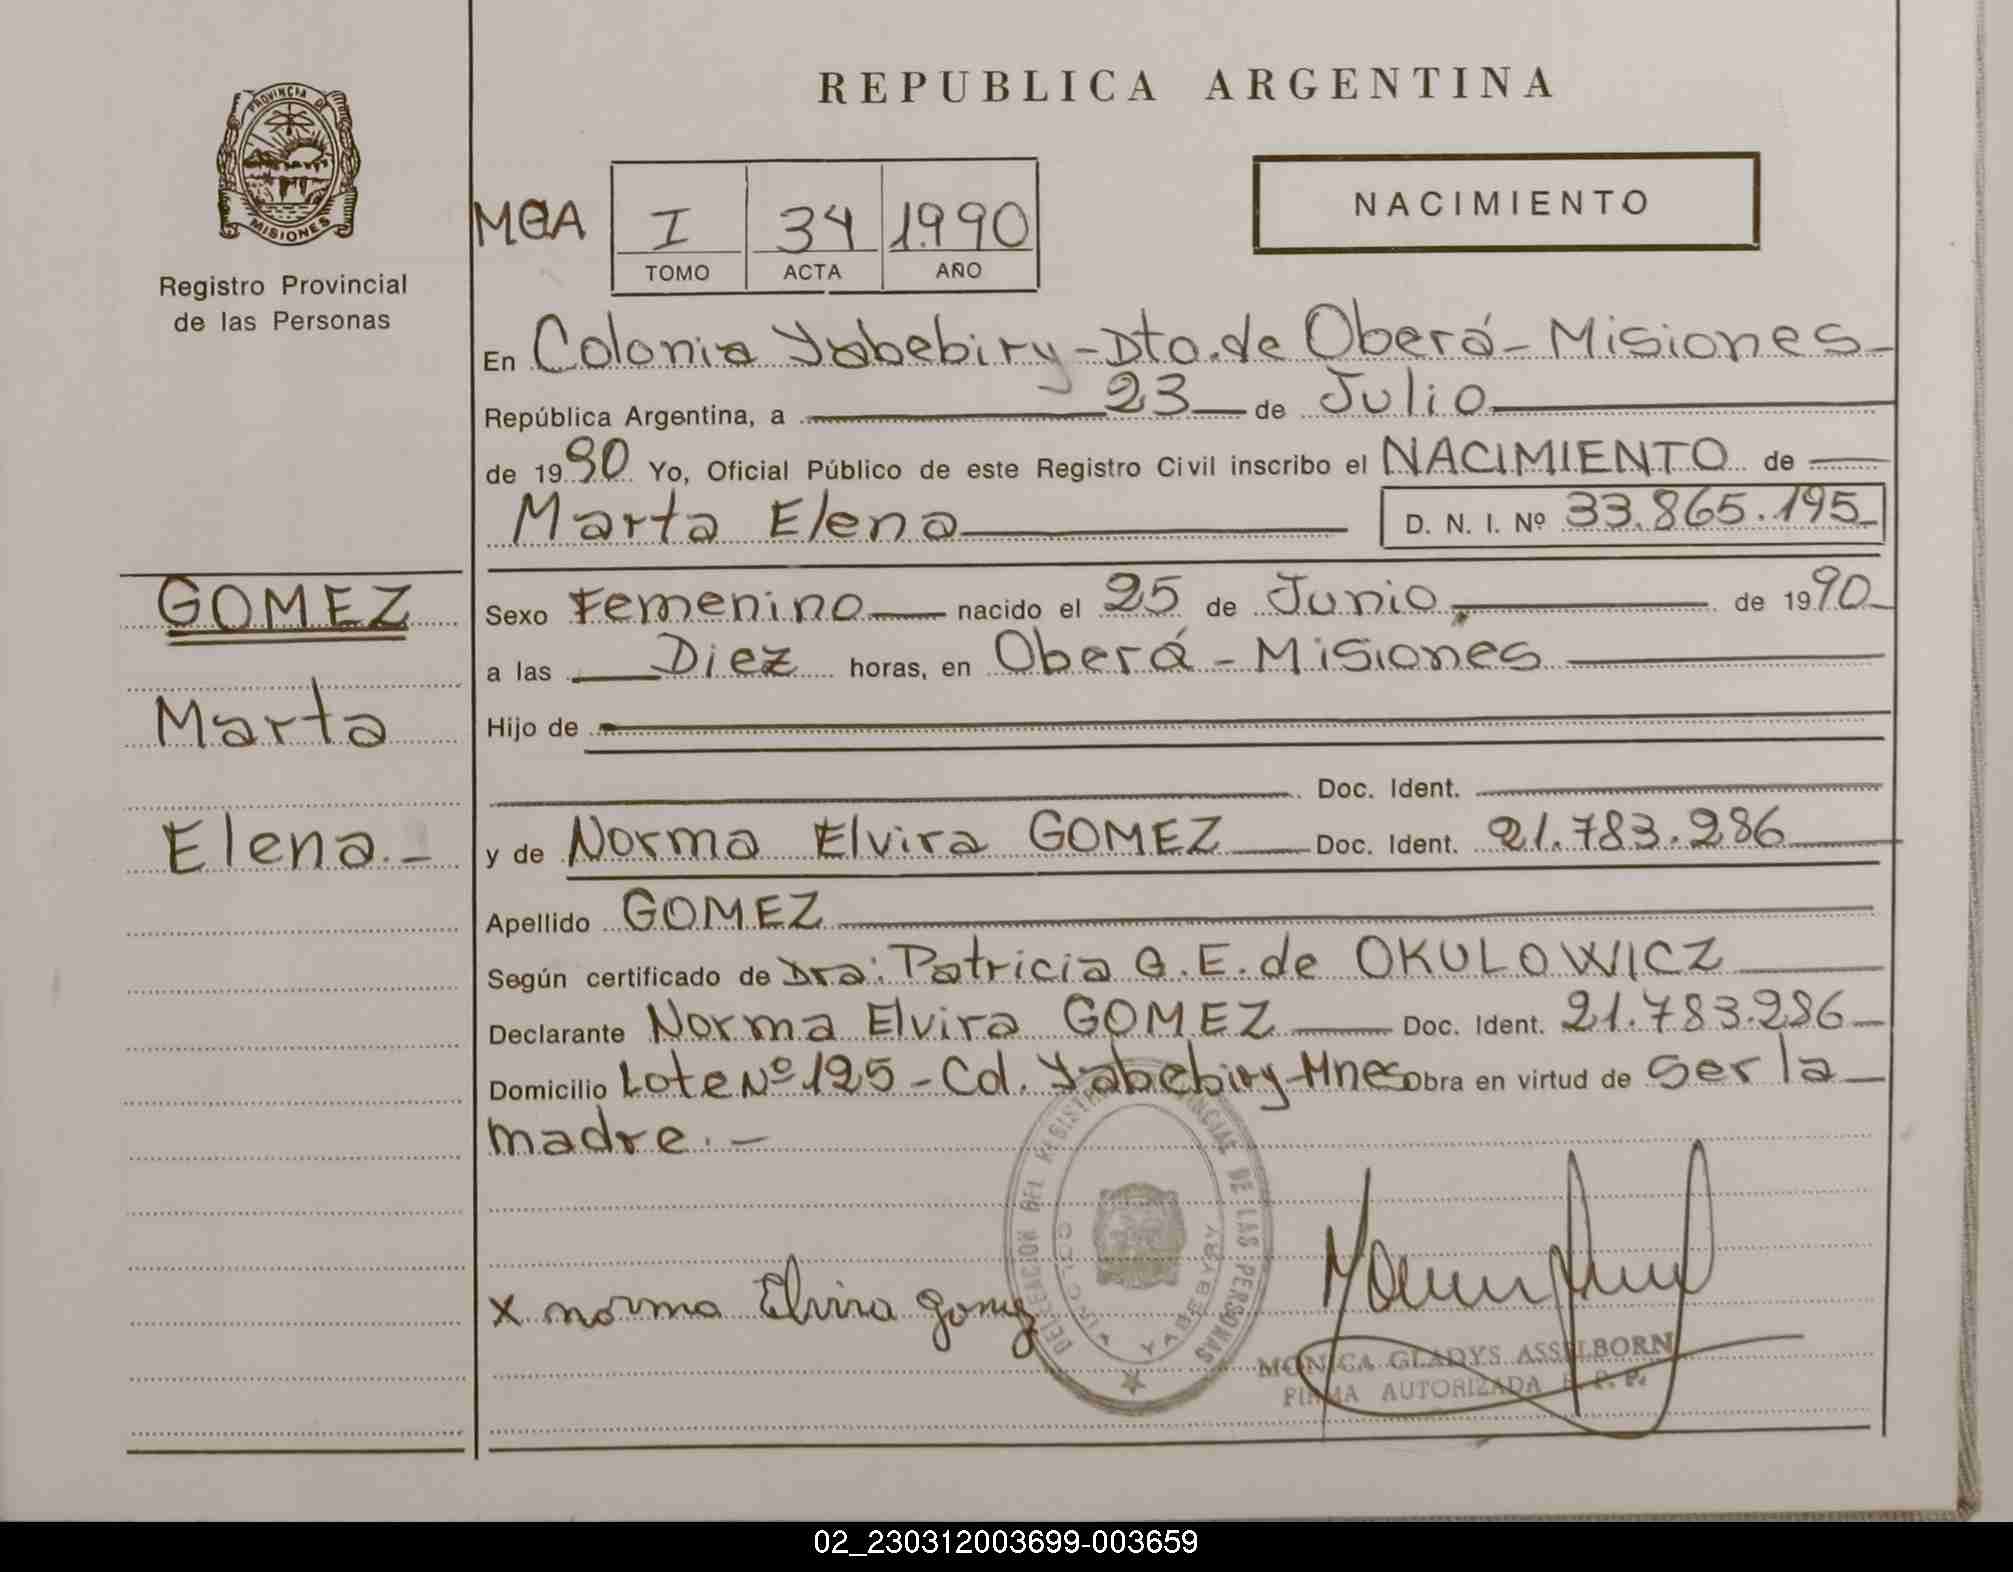 PROVINCIA D
MISIONES
Registro Provincial
de las Personas
GOMEZ
Marta
Elena.-
REPUBLICA ARGENTINA
NACIMIENTO
I 34 1990
TOMO ACTA AÑO
En Colonia Yabebiry - Dto. de Oberá - Misiones
República Argentina, a 23 de Julio
de 1990 Yo, Oficial Público de este Registro Civil inscribo el NACIMIENTO de
Marta Elena D. N. I. Nº 33.865.195
Sexo Femenino nacido el 25 de Junio de 1990
a las Diez horas, en Oberá - Misiones
Hijo de
Doc. Ident.
y de Norma Elvira GOMEZ Doc. Ident. 21.783.286
Apellido GOMEZ
Según certificado de Dra: Patricia G. E. de OKULOWICZ
Declarante Norma Elvira GOMEZ Doc. Ident. 21.783.286
Domicilio Lote Nº 125 - Cd. Yabebiry - Mnes Obra en virtud de ser la
madre.-
DELEGACION DEL REGISTRO PROVINCIAL DE LAS PERSONAS
COLONIA YABEBYRY
x norma Elvira gomez
MONICA GLADYS ASSELBORN
FIRMA AUTORIZADA R. P. P.
02_230312003699-003659